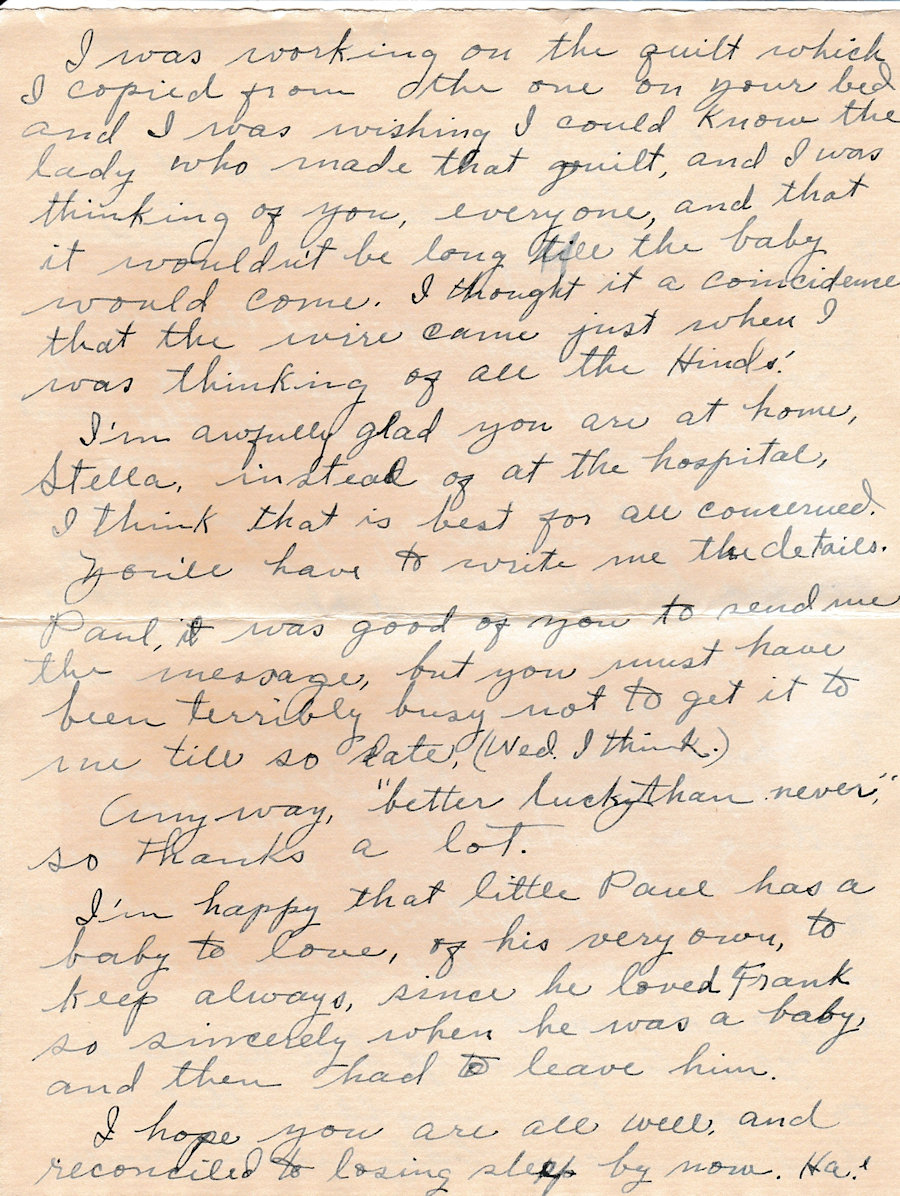 I was working on the quilt which
I copied from the one on your bed
and I was wishing I could know the
lady who made that quilt, and I was
thinking of you, everyone, and that
it wouldn't be long till the baby
would come. I thought it a coincidence
that the wire came just when I
was thinking of all the Hinds'.
I'm awfully glad you are at home,
Stella, instead of at the hospital,
I think that is best for all concerned.
You'll have to write me the details.
Paul, it was good of you to send me
the message, but you must have
been terribly busy not to get it to
me till so late, (Wed. I think.)
Anyway, "better lucky than never,"
so thanks a lot.
I'm happy that little Paul has a
baby to love, of his very own, to
keep always, since he loved Frank
so sincerely when he was a baby,
and then had to leave him.
I hope you are all well, and
reconciled to losing sleep by now. Ha!